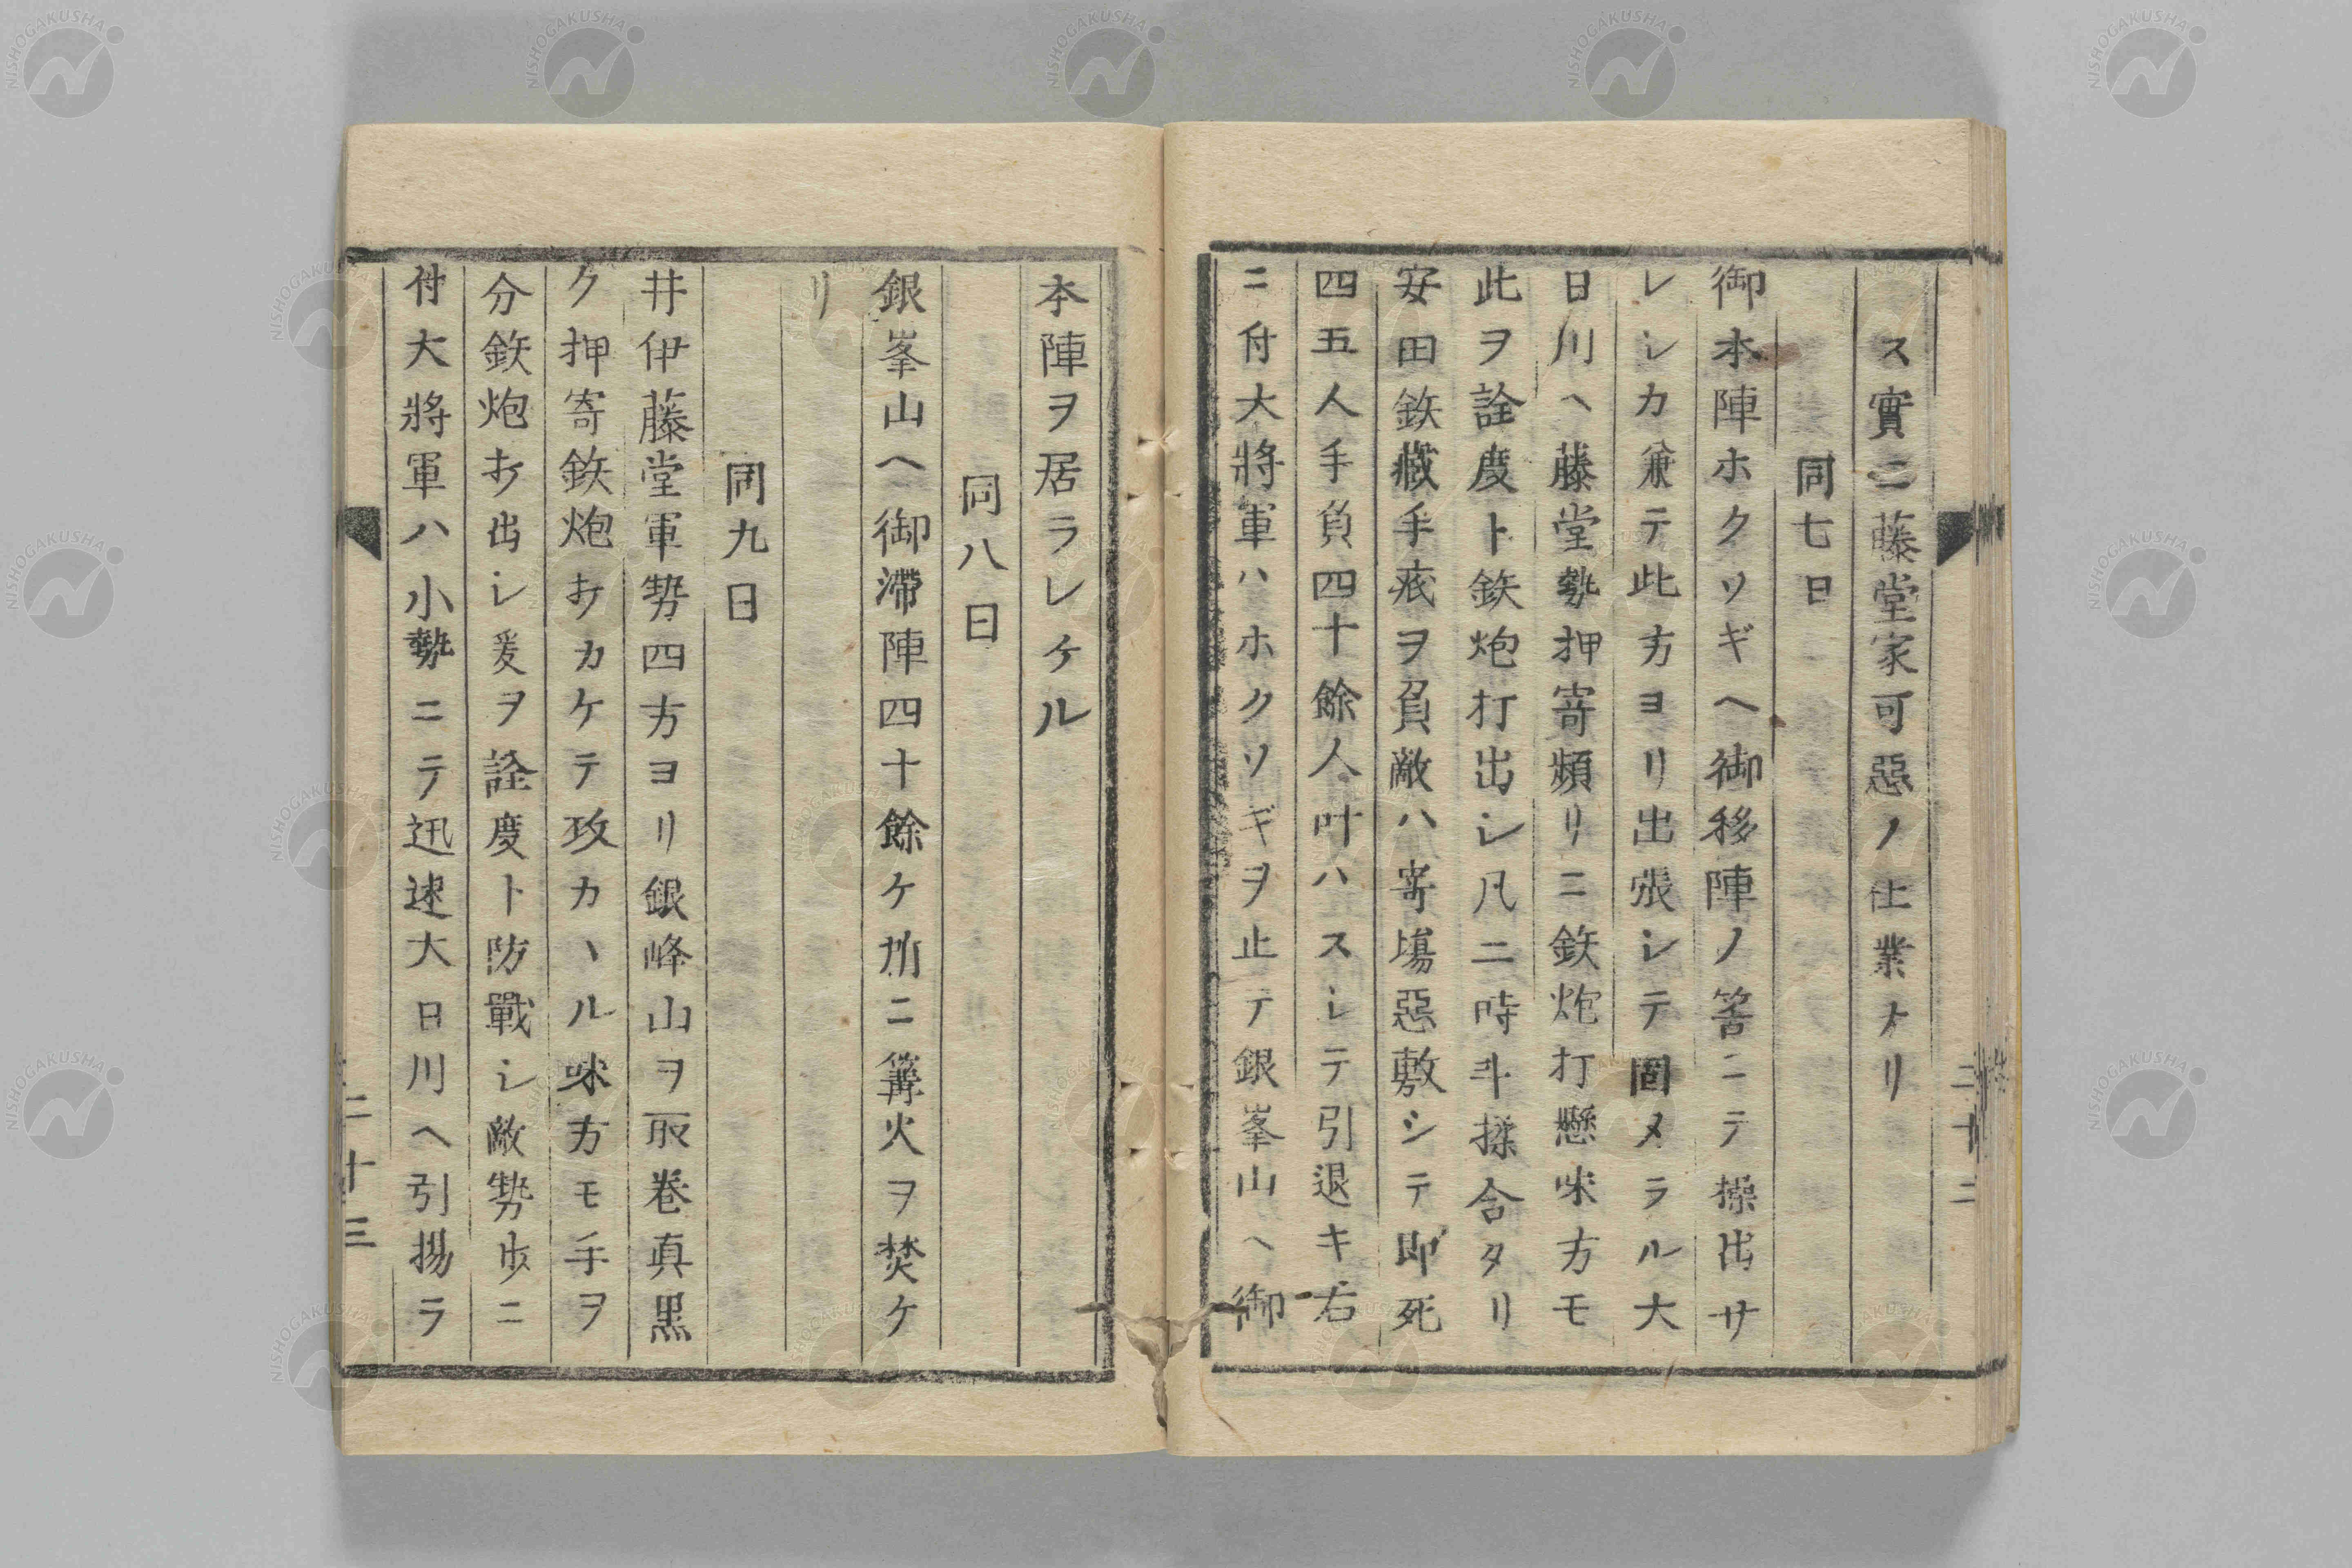 ス實ニ藤堂家可惡ノ仕業ナリ
同七日
御本陣ホクソギヘ御移陣ノ筈ニテ操出サ
レシカ兼テ此方ヨリ出張シテ固メラル大
日川ヘ藤堂勢押寄頻リニ鉄炮打懸味方モ
此ヲ詮度ト鉄炮打出シ凡二時斗揉合タリ
安田鉄藏手疵ヲ負敵ハ寄塲惡敷シテ即死
四五人手負四十餘人叶ハスシテ引退キ右
ニ付大將軍ハホクソギヲ止テ銀峯山ヘ御
二十二
本陣ヲ居ラレケル
同八日
銀峯山ヘ御滞陣四十餘ケ所ニ篝火ヲ焚ケ
リ
同九日
井伊藤堂軍勢四方ヨリ銀峰山ヲ取巻真黒
ク押寄鉄炮打カケテ攻カヽル味方モ手ヲ
分鉄炮打出シ爰ヲ詮度ト防戰シ敵勢歩ニ
付大將軍ハ小勢ニテ迅速大日川ヘ引揚ラ
二十三
NISHOGAKUSHA